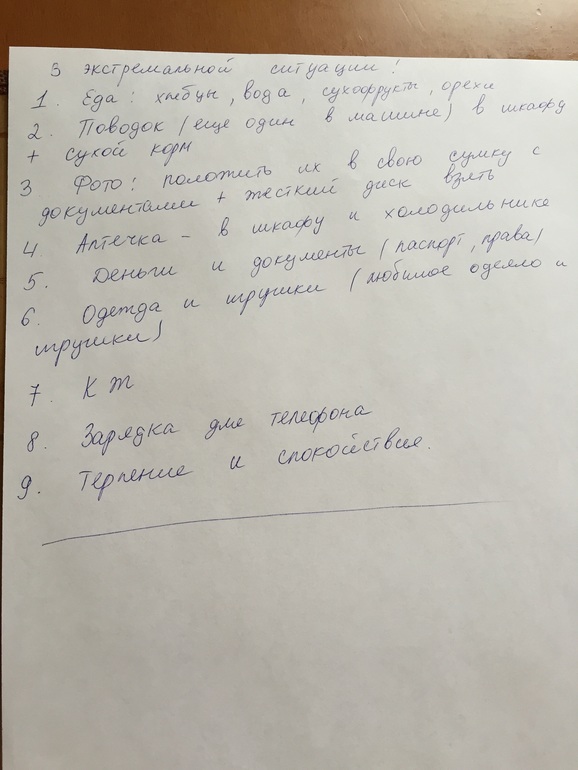 В экстремальной ситуации!
1. Еда: хлебцы, вода, сухофрукты, орехи
2. Поводок (еще один в машине) в шкафу
+ сухой корм
3 Фото: положить их в свою сумку с
документами + жесткий диск взять
4. Аптечка - в шкафу и холодильнике
5. Деньги и документы (паспорт, права)
6. Одежда и игрушки (любимое одеяло и
игрушки)
7. КЖ
8. Зарядка для телефона
9. Терпение и спокойствия.